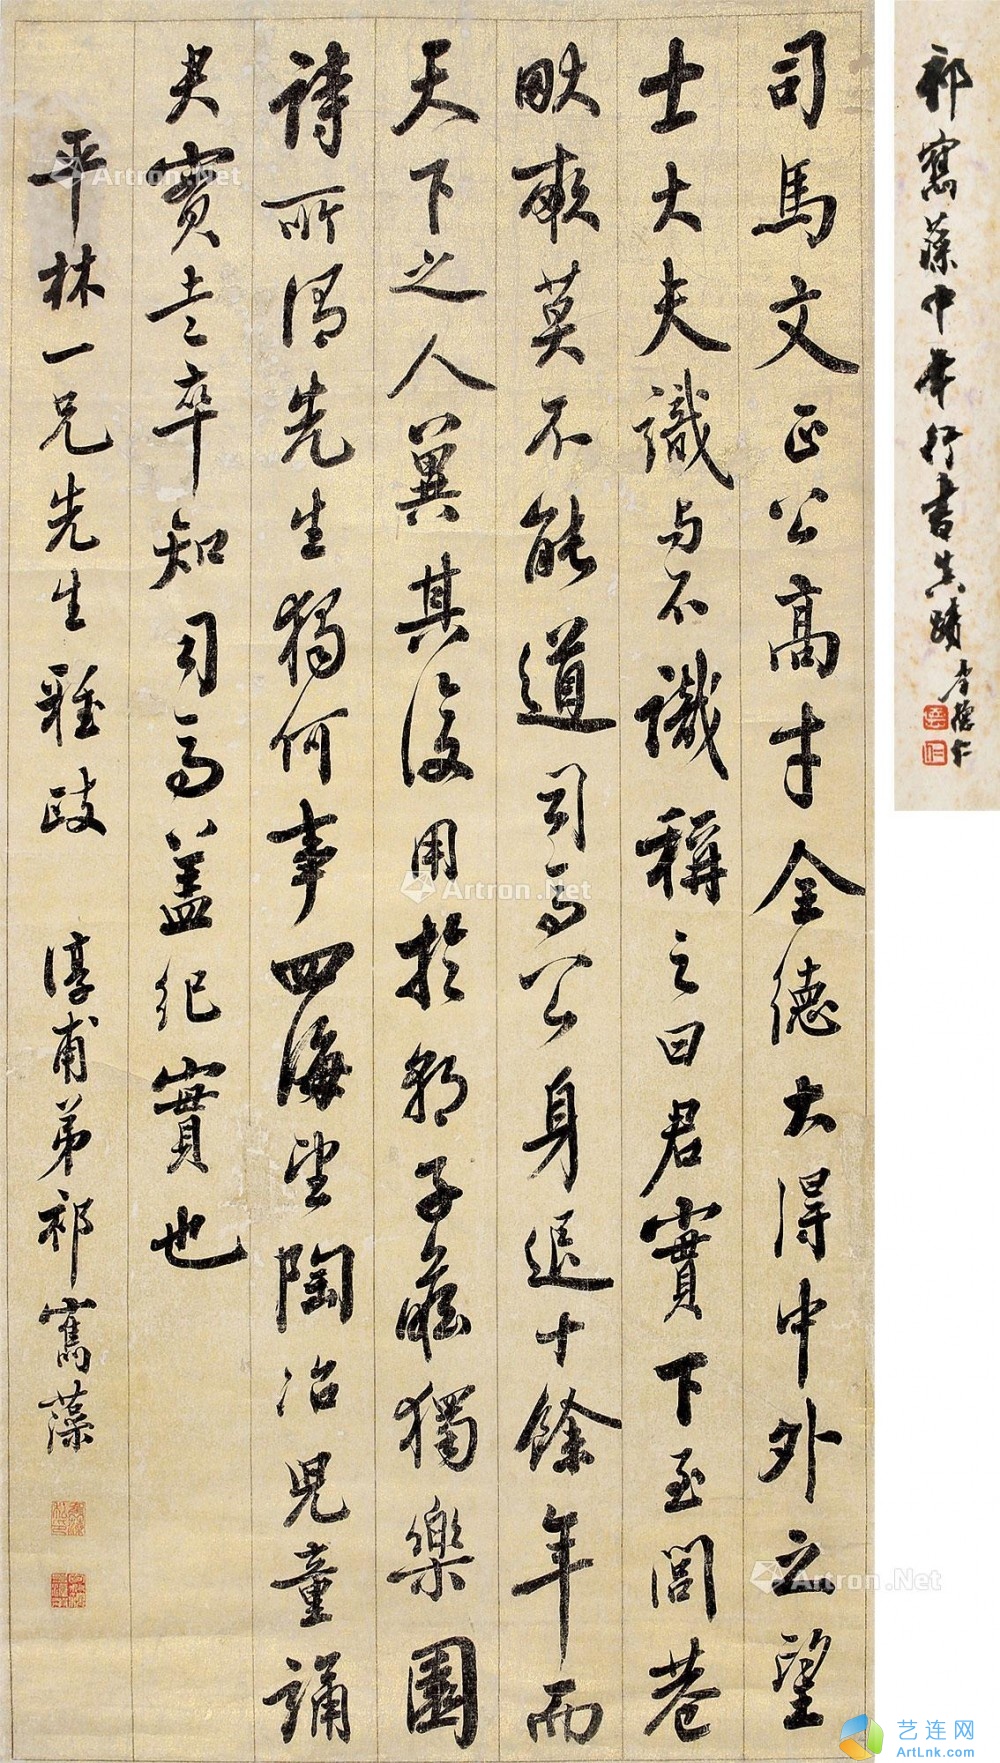 祁寯藻中年行書真蹟 李德仁
司馬文正公高才全德大得中外之望
士大夫識与不識稱之曰君實下至閭巷
畎畝莫不能道司馬公身退十餘年而
天下之人冀其復用於朝子瞻獨樂園
詩所謂先生獨何事四海望陶冶兒童誦
君實走卒知司馬盖紀實也
平林一兄先生雅政 淳甫弟祁寯藻
Artron.Net
艺连网
ArtLnk.com